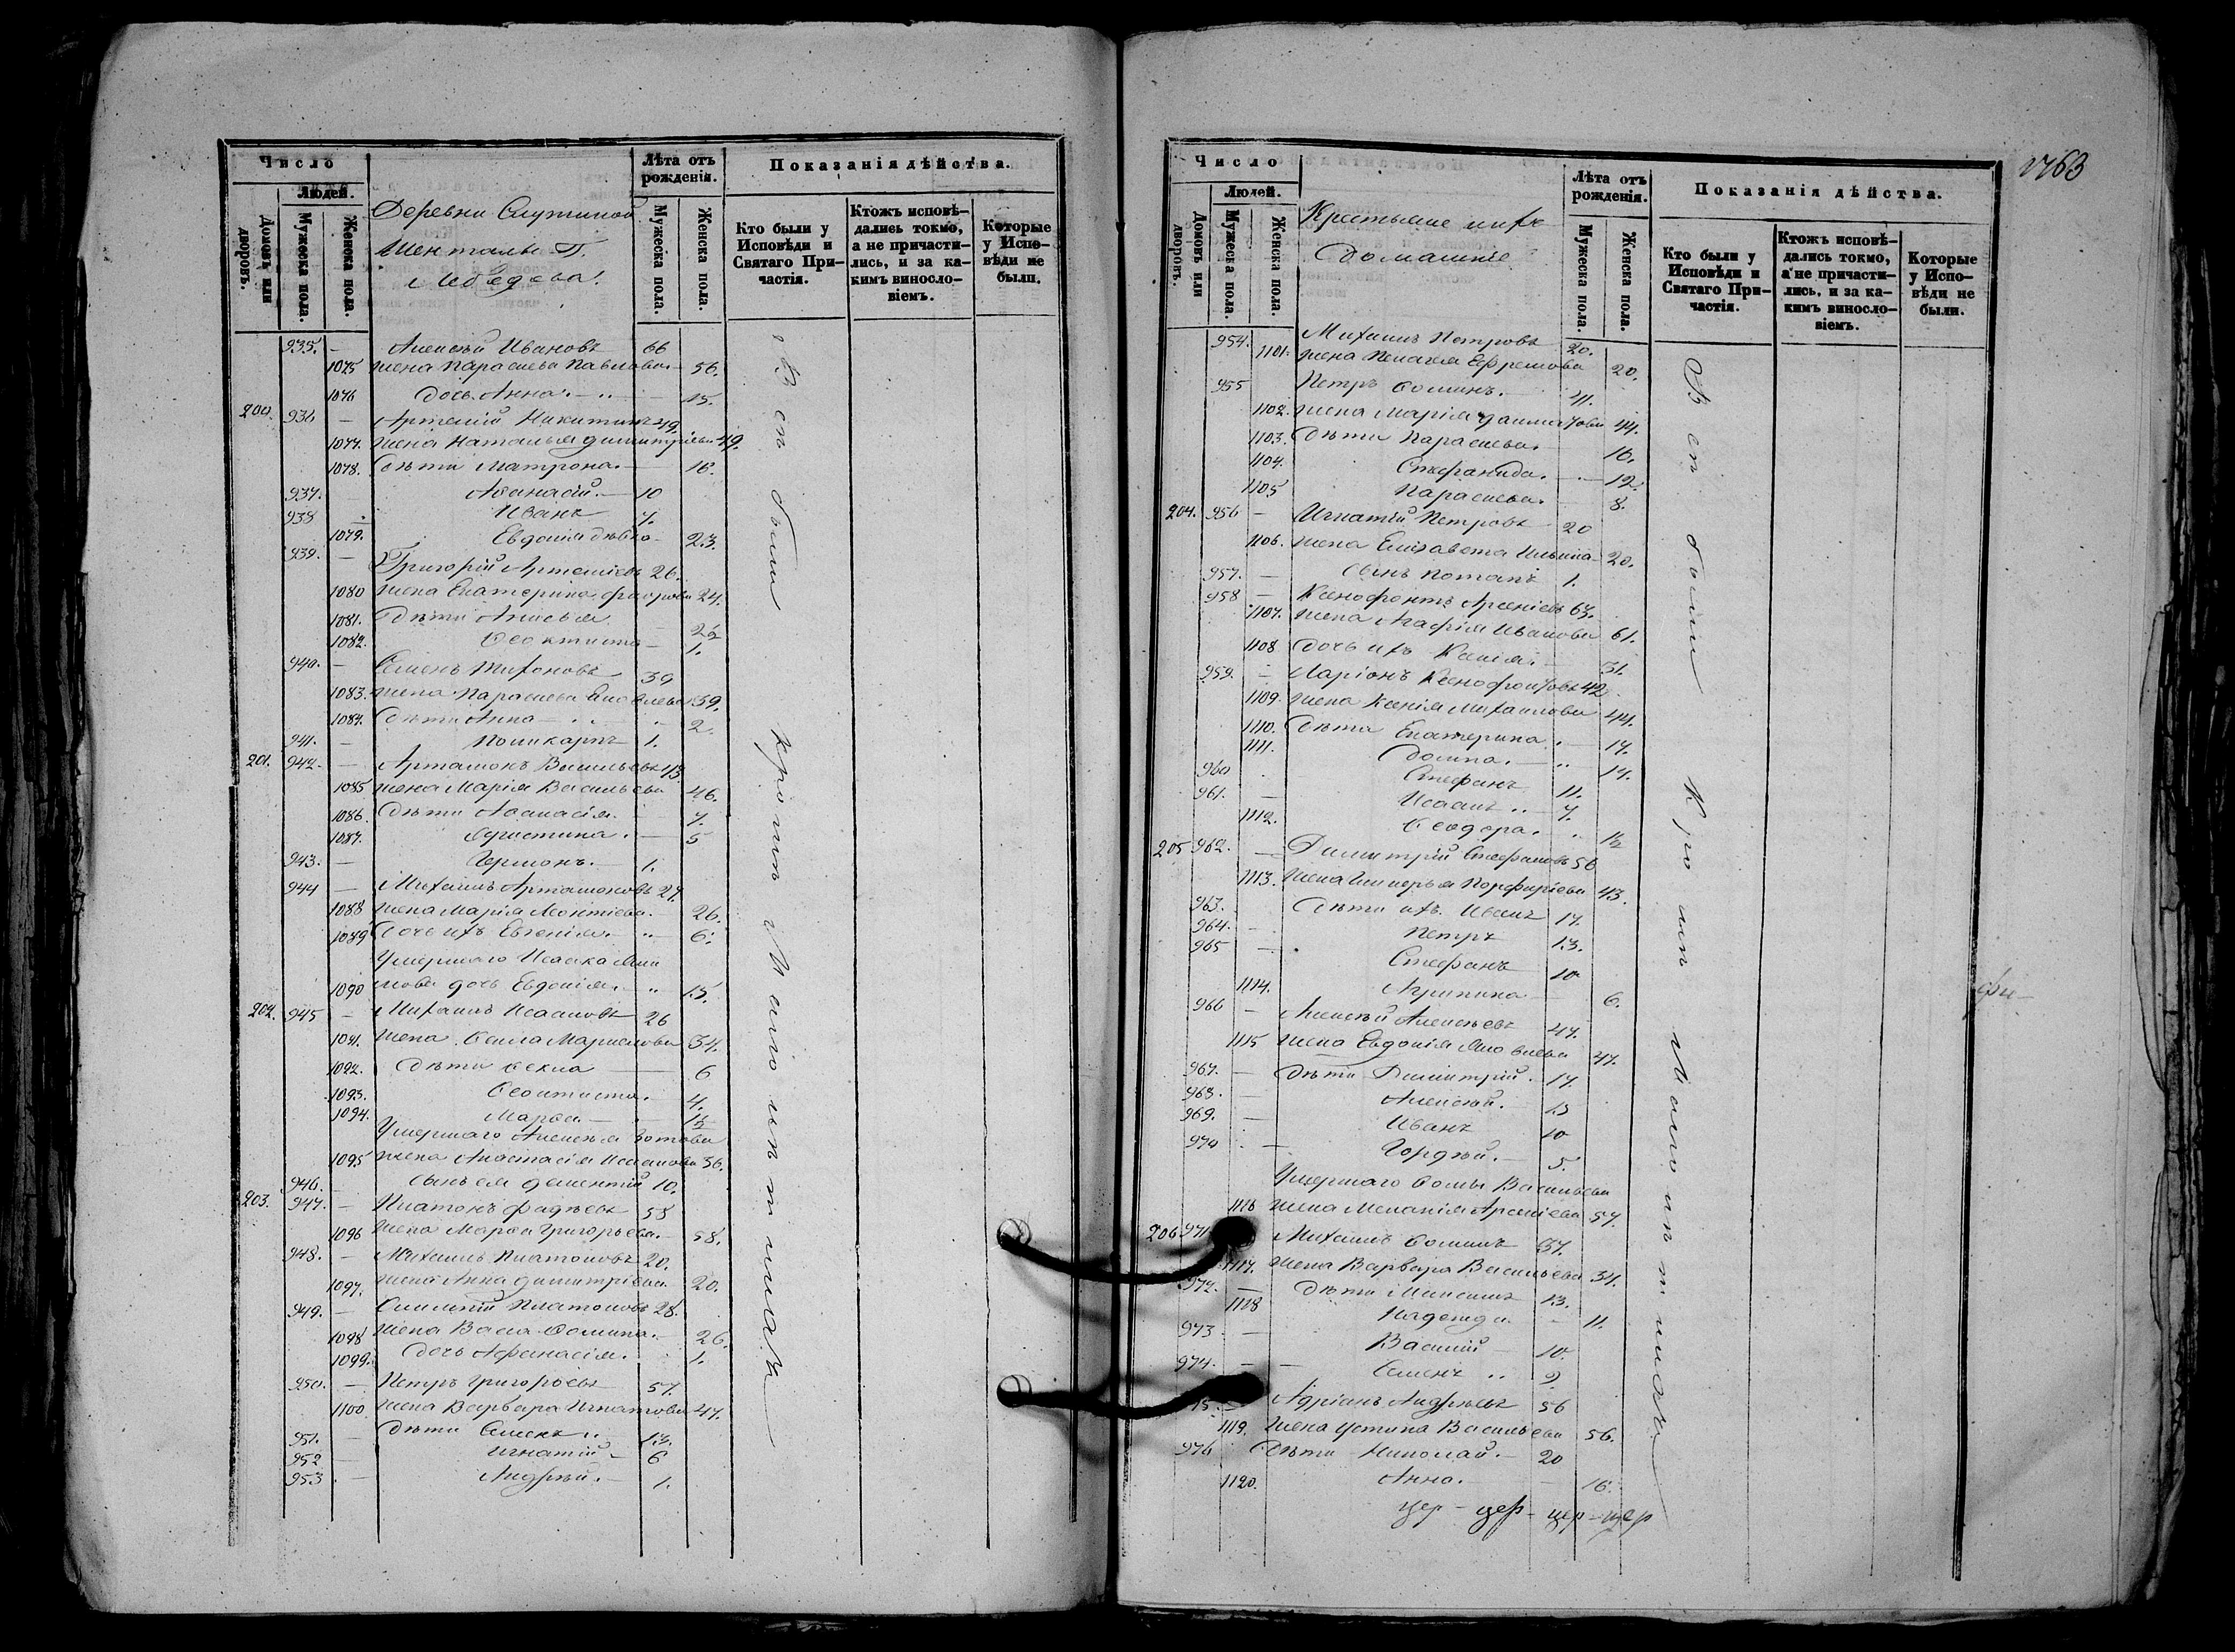 Число
Людей.
Домовъ или дворовъ.
Мужеска пола.
Женска пола.
Деревни Слутиной
Шенталы П.
Лебедева.
Лѣта отъ рожденія.
Мужеска пола.
Женска пола.
Показанія дѣйства.
Кто были у Исповѣди и Святаго Причастія.
Ктожъ исповѣдались токмо, а не причастились, и за какимъ винословіемъ.
Которые у Исповѣди не были.
935. — Алексѣй Ивановъ 66
1075 жена Параскева Павлова 56.
1076 дочь Анна 15.
200. 936 — Артемій Никитинъ 49.
1077. жена Наталья Димитріева 49.
1078. дѣти Матрона 16.
937. Аѳанасій 10
938 Иванъ 7.
1079. Евдокія дѣвка 23.
939. — Григорій Артеміевъ 26.
1080 жена Екатерина 24.
1081. Дѣти Анисья 2½
1082. Ѳеоктиста 1.
940. — Семенъ Тихоновъ 39
1083. жена Параскева Яковлева 39.
1084. Дѣти Анна 2.
941. — Поликарпъ 1.
201. 942. — Артамонъ Васильевъ 43
1085 жена Марія Васильева 46.
1086. Дѣти Аѳанасія 7.
1087. Христина 5
943. — Гермонъ 1.
944 — Михаилъ Артамоновъ 27.
1088 жена Марія Леонтіева 26.
1089 Дочь ихъ Евгенія 6.
Умершаго Исаака
1090 дочь Евдокія 15.
202. 945 — Михаилъ Исааковъ 26
1091. жена Ѳекла 34.
1092. Дѣти Ѳекла 6
1093. Ѳеоктиста 4.
1094. Марѳа 1½
Умершаго Алексѣя Зотова
1095 жена Анастасія Исаакова 36.
946. Сынъ ея Дементій 10.
203. 947. — Платонъ Фадѣевъ 58
1096 жена Марѳа Григорьева 58.
948. — Михаилъ Платоновъ 20.
1097. жена Анна Димитріева 20.
949. — Платоновъ 28.
1098 жена Васса Ѳомина 26.
1099. Дочь Аѳанасія 1.
950. — Петръ Григорьевъ 57.
1100 жена Варвара Игнатова 47.
951. — Дѣти Семенъ 13.
952 — Игнатій 6
953 — Андрей 1.
Всѣ были кромѣ Малолѣтныхъ
1763
Число
Людей.
Домовъ или дворовъ.
Мужеска пола.
Женска пола.
Крестьяне ихъ
Домашніе
Лѣта отъ рожденія.
Мужеска пола.
Женска пола.
Показанія дѣйства.
Кто были у Исповѣди и Святаго Причастія.
Ктожъ исповѣдались токмо, а не причастились, и за какимъ винословіемъ.
Которые у Исповѣди не были.
954. Михаилъ Петровъ 20.
1101. жена Пелагея Ефремова 20.
955 Петръ Ѳоминъ 41.
1102. жена Марія 44.
1103. Дѣти Параскева 16.
1104. Стефанида 12.
1105 Параскева 8.
204. 956 — Игнатій Петровъ 20
1106. жена Елизавета Ильина 20.
957. — Сынъ Потапъ 1.
958 — Ксенофонтъ Арсеніевъ 63.
1107. жена Агафія Иванова 61.
1108 дочь ихъ Ксенія 31.
959. — Ларіонъ Ксенофонтовъ 42.
1109. жена Ксенія Михаилова 44.
1110. Дѣти Екатерина 17.
1111. Домна 14.
960 Стефанъ 11.
961. — Исаакъ 7.
1112. Ѳеодора 1½
205 962. — Димитрій Стефановъ 56
1113. жена Гликерья Порфиріева 43.
963. Дѣти ихъ Иванъ 17.
964. — Петръ 13.
965 — Стефанъ 10
1114. Агрипина 6.
966 — Алексѣй Алексѣевъ 47.
1115 жена Евдокія Яковлева 47.
967. — Дѣти Димитрій 17.
968. — Алексѣй 13
969. Иванъ 10
970 — Гордѣй 5.
Умершаго Ѳомы Васильева
1116 жена Меланія Арсеніева 57.
206 971 Михаилъ Ѳоминъ 37.
1117. жена Варвара Васильева 34.
972. — Дѣти Максимъ 13.
1118 Надежда 11.
973 — Василій 10.
974. — Семенъ 9.
Адріанъ Андрѣевъ 56
1119. жена Устина Васильева 56.
976 Дѣти Николай 20
1120. Анна 16.
Всѣ были кромѣ Малолѣтныхъ